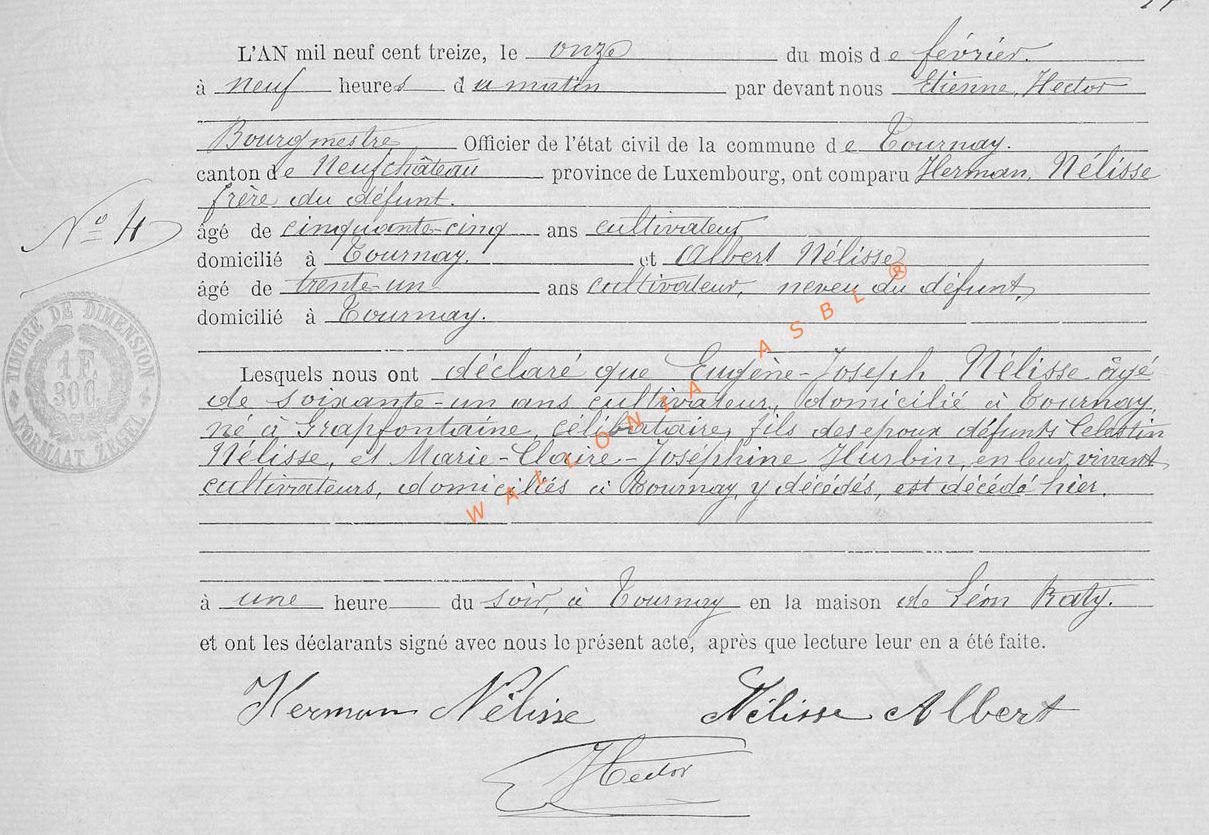 L'AN mil neuf cent treize, le onze du mois de février.
à neuf heures du matin par devant nous Etienne, Hector
Bourgmestre Officier de l'état civil de la commune de Tournay.
canton de Neufchâteau province de Luxembourg, ont comparu Herman, Nélisse
frère du défunt.
N° 4
âgé de cinquante-cinq ans cultivateur
domicilié à Tournay. et Albert Nélisse
âgé de trente-un ans cultivateur, neveu du défunt,
domicilié à Tournay.
TIMBRE DE DIMENSION
1 F.
30 C.
FORMAAT ZEGEL
Lesquels nous ont déclaré que Eugène-Joseph Nélisse âgé
de soixante-un ans cultivateur, domicilié à Tournay,
né à Grapfontaine, célibataire, fils des epoux défunts Celestin
Nélisse, et Marie-Claire-Joséphine Hurbin, en leur vivant
cultivateurs, domiciliés à Tournay, y décédés, est décédé hier.
WALLONIA ASBL ®
à une heure du soir, à Tournay en la maison de Léon Raty.
et ont les déclarants signé avec nous le présent acte, après que lecture leur en a été faite.
Herman Nélisse Nélisse Albert
Hector